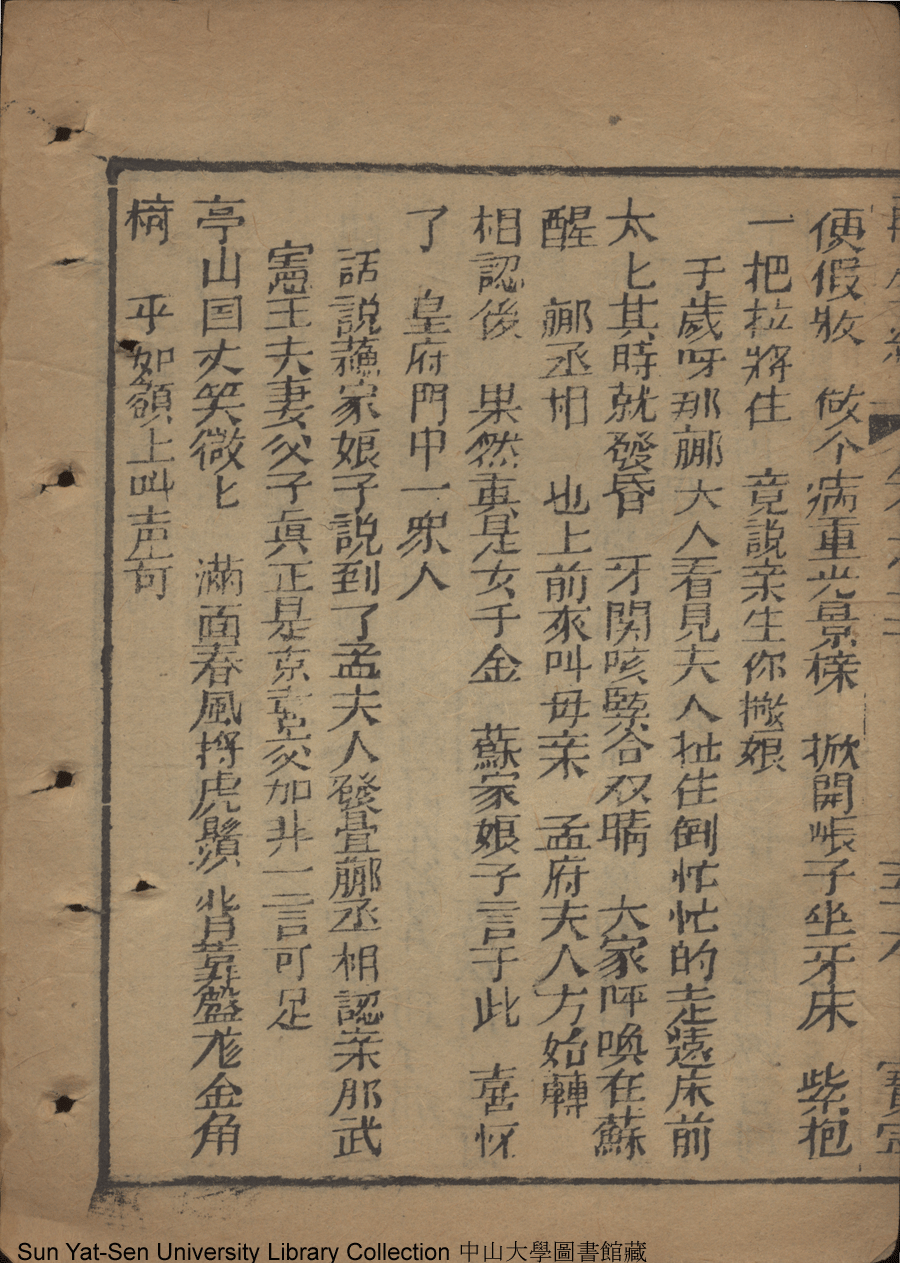 便假妝　做个病重光景樣　掀開帳子坐牙床　紫抱
一把拉將住　竟説亲生你撇娘
于歲呀那郦大人看見夫人扯住倒忙忙的走遠床前
太匕其時就發昏　牙関咳緊合双睛　大家呼喚在蘇
醒　郦丞相　也上前來叫母亲　孟府夫人方始轉
相認後　果然真是女千金　蘇家娘子言于此　喜怀
了　皇府門中一衆人
話説蘓家娘子説到了孟夫人發暈郦丞相認亲那武
憲王夫妻父子真正是京喜交加非一言可足
亭山国丈笑微匕　滿面春風捋虎鬚　背靠盤龙金角
椅　乎如額上叫声可
Sun Yat-Sen University Library Collection 中山大學圖書館藏